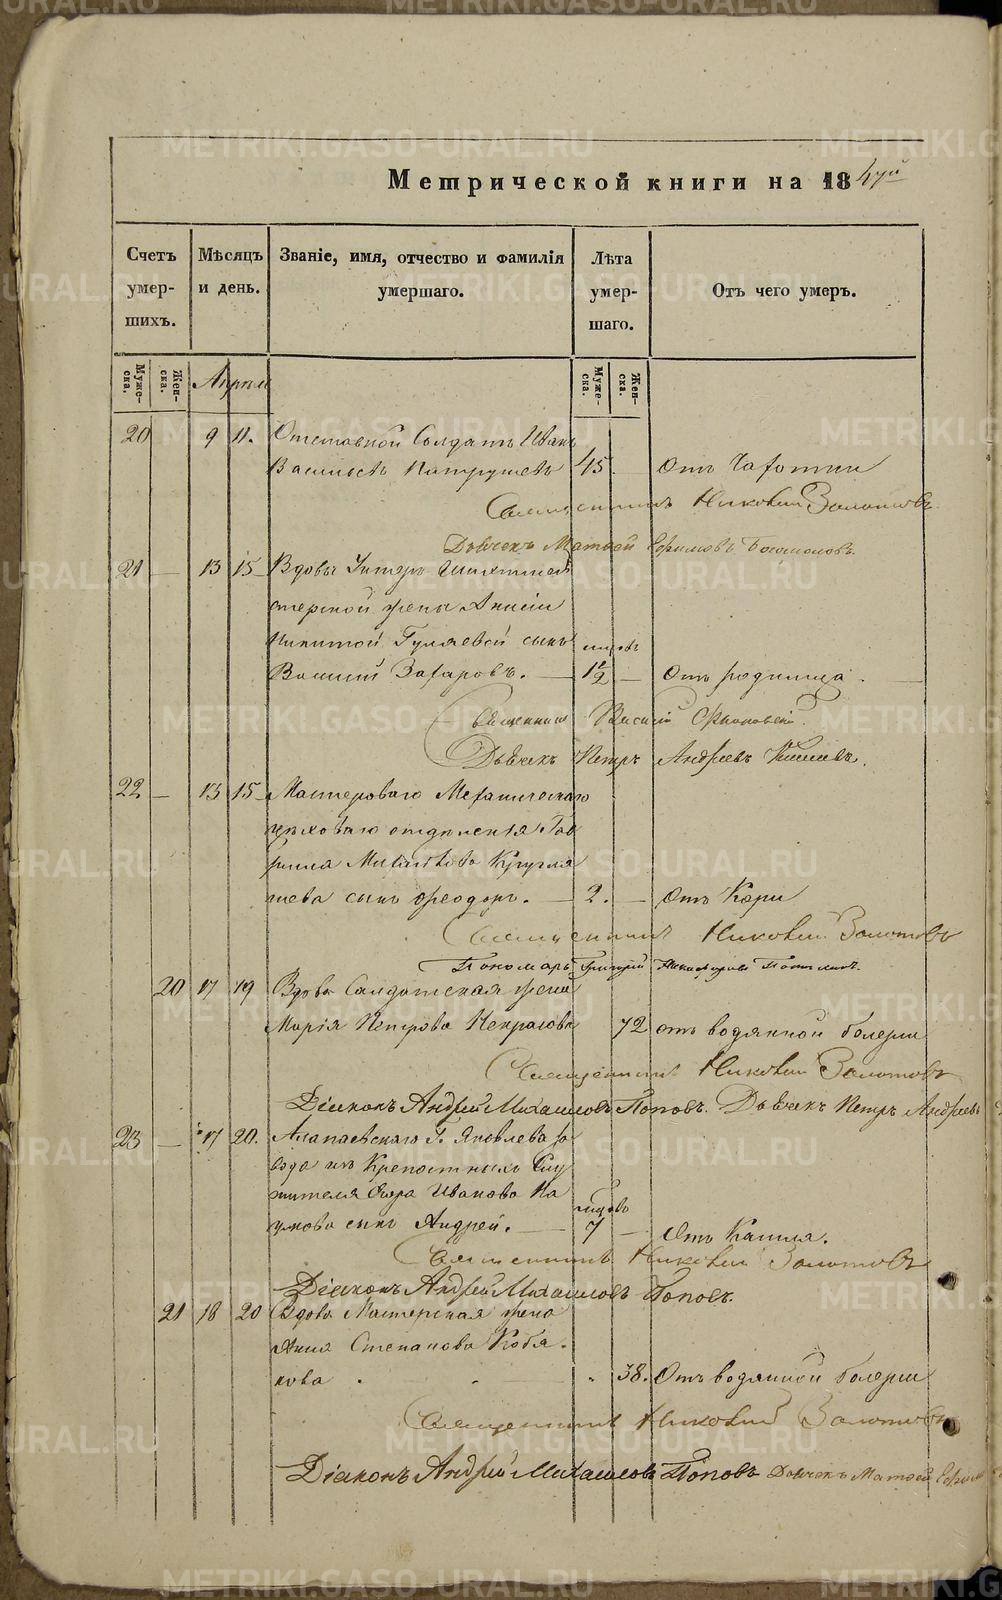 Метрической книги на 1847й
Счетъ умершихъ. Мѣсяцъ и день. Званіе, имя, отчество и фамилія умершаго. Лѣта умершаго. Отъ чего умеръ.
Мужеска. Женска. Мужеска. Женска.
Апрѣля
20 9 11. Отставной Солдатъ Иванъ
Васильевъ Патрушевъ 45 Отъ Чахотки
Священникъ Никокій Золотовъ
Дьячекъ Матвей Ефимовъ Богомоловъ.
21 13 15 Вдовы Унтеръ Шихтмей
стерской жены Анисіи
Никитой Гуляевой сынъ
Василий Захаровъ. 1/2 Отъ родимца.
Священник Василій
Дьячекъ Петръ Андреевъ
22 13 15 Мастероваго Механическаго
цѣховаго отдѣленія Гав
рила Михайлова Кругля
шева сынъ Ѳеодоръ. 2. Отъ Кори
Священникъ Никокій Золотовъ
Пономарь Григорій
20 17 19 Вдова Салдатская жена
Марія Петрова Некрасова 72 отъ водянной болезни
Священникъ Никокій Золотовъ
Діаконъ Андрей Михаиловъ Поповъ. Дьячекъ Петръ Андреевъ
23 17 20. Алапаевскаго Г. Яковлева за
вода изъ Крепостныхъ Слу
жителя Иванова На
умова сынъ Андрей. 7 Отъ Кашля.
Священникъ Никокій Золотовъ
Діаконъ Андрей Михаиловъ Поповъ.
21 18 20 Вдова Мастерская жена
Анна Степанова Кобя
кова 38. Отъ водянной болезни
Священникъ Никокій Золотовъ
Діаконъ Андрей Михаиловъ Поповъ Дьячекъ Матвей
METRIKI.GASO-URAL.RU